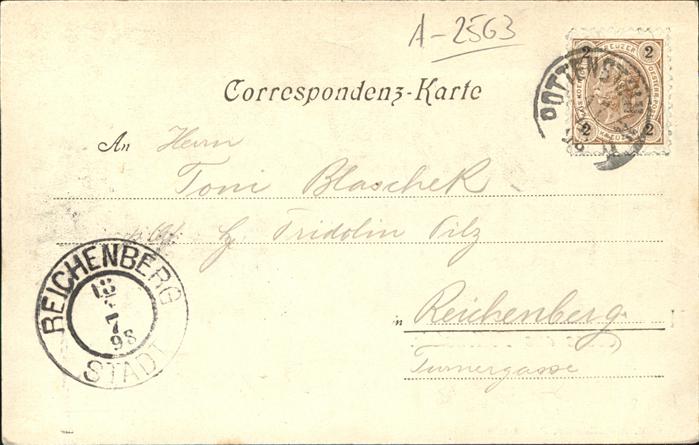 A-2563
2 KREUZER 2
2 2
POTTENSTEIN
98
Correspondenz-Karte
An Herrn
Toni Blaschek
bz. Fridolin Pilz
in Reichenberg
Turnergasse
REICHENBERG
13
7
98
STADT